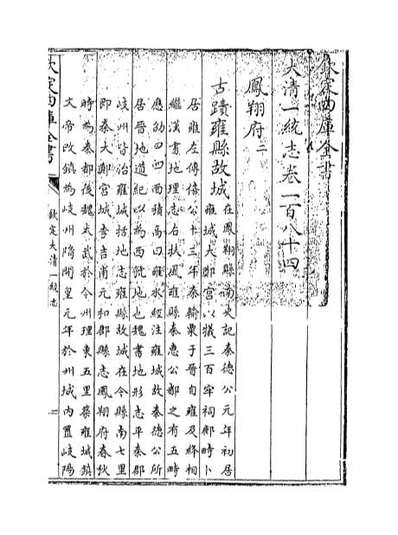 欽定四庫全書
大清一統志卷一百八十四
鳳翔府二
古蹟雍縣故城在鳳翔縣南史記秦德公元年初居
雍城大鄭宮以犧三百牢祠鄜畤卜
居雍左傳僖公十三年秦輸粟于晉自雍及絳相
繼漢書地理志右扶風雍秦惠公都之有五畤
應劭曰四面積高曰雍水經注雍城故秦德公所
居晉地道記以為西虢地也魏書地形志平秦郡
岐州皆治雍城括地志雍縣故城在今縣南七里
即秦大鄭宮城李吉甫元和郡縣志鳳翔府春秋
時為秦都後魏太武於今州理東五里築雍城鎮
文帝改鎮為岐州隋開皇元年於州城內置岐陽
欽定四庫全書
欽定大清一統志